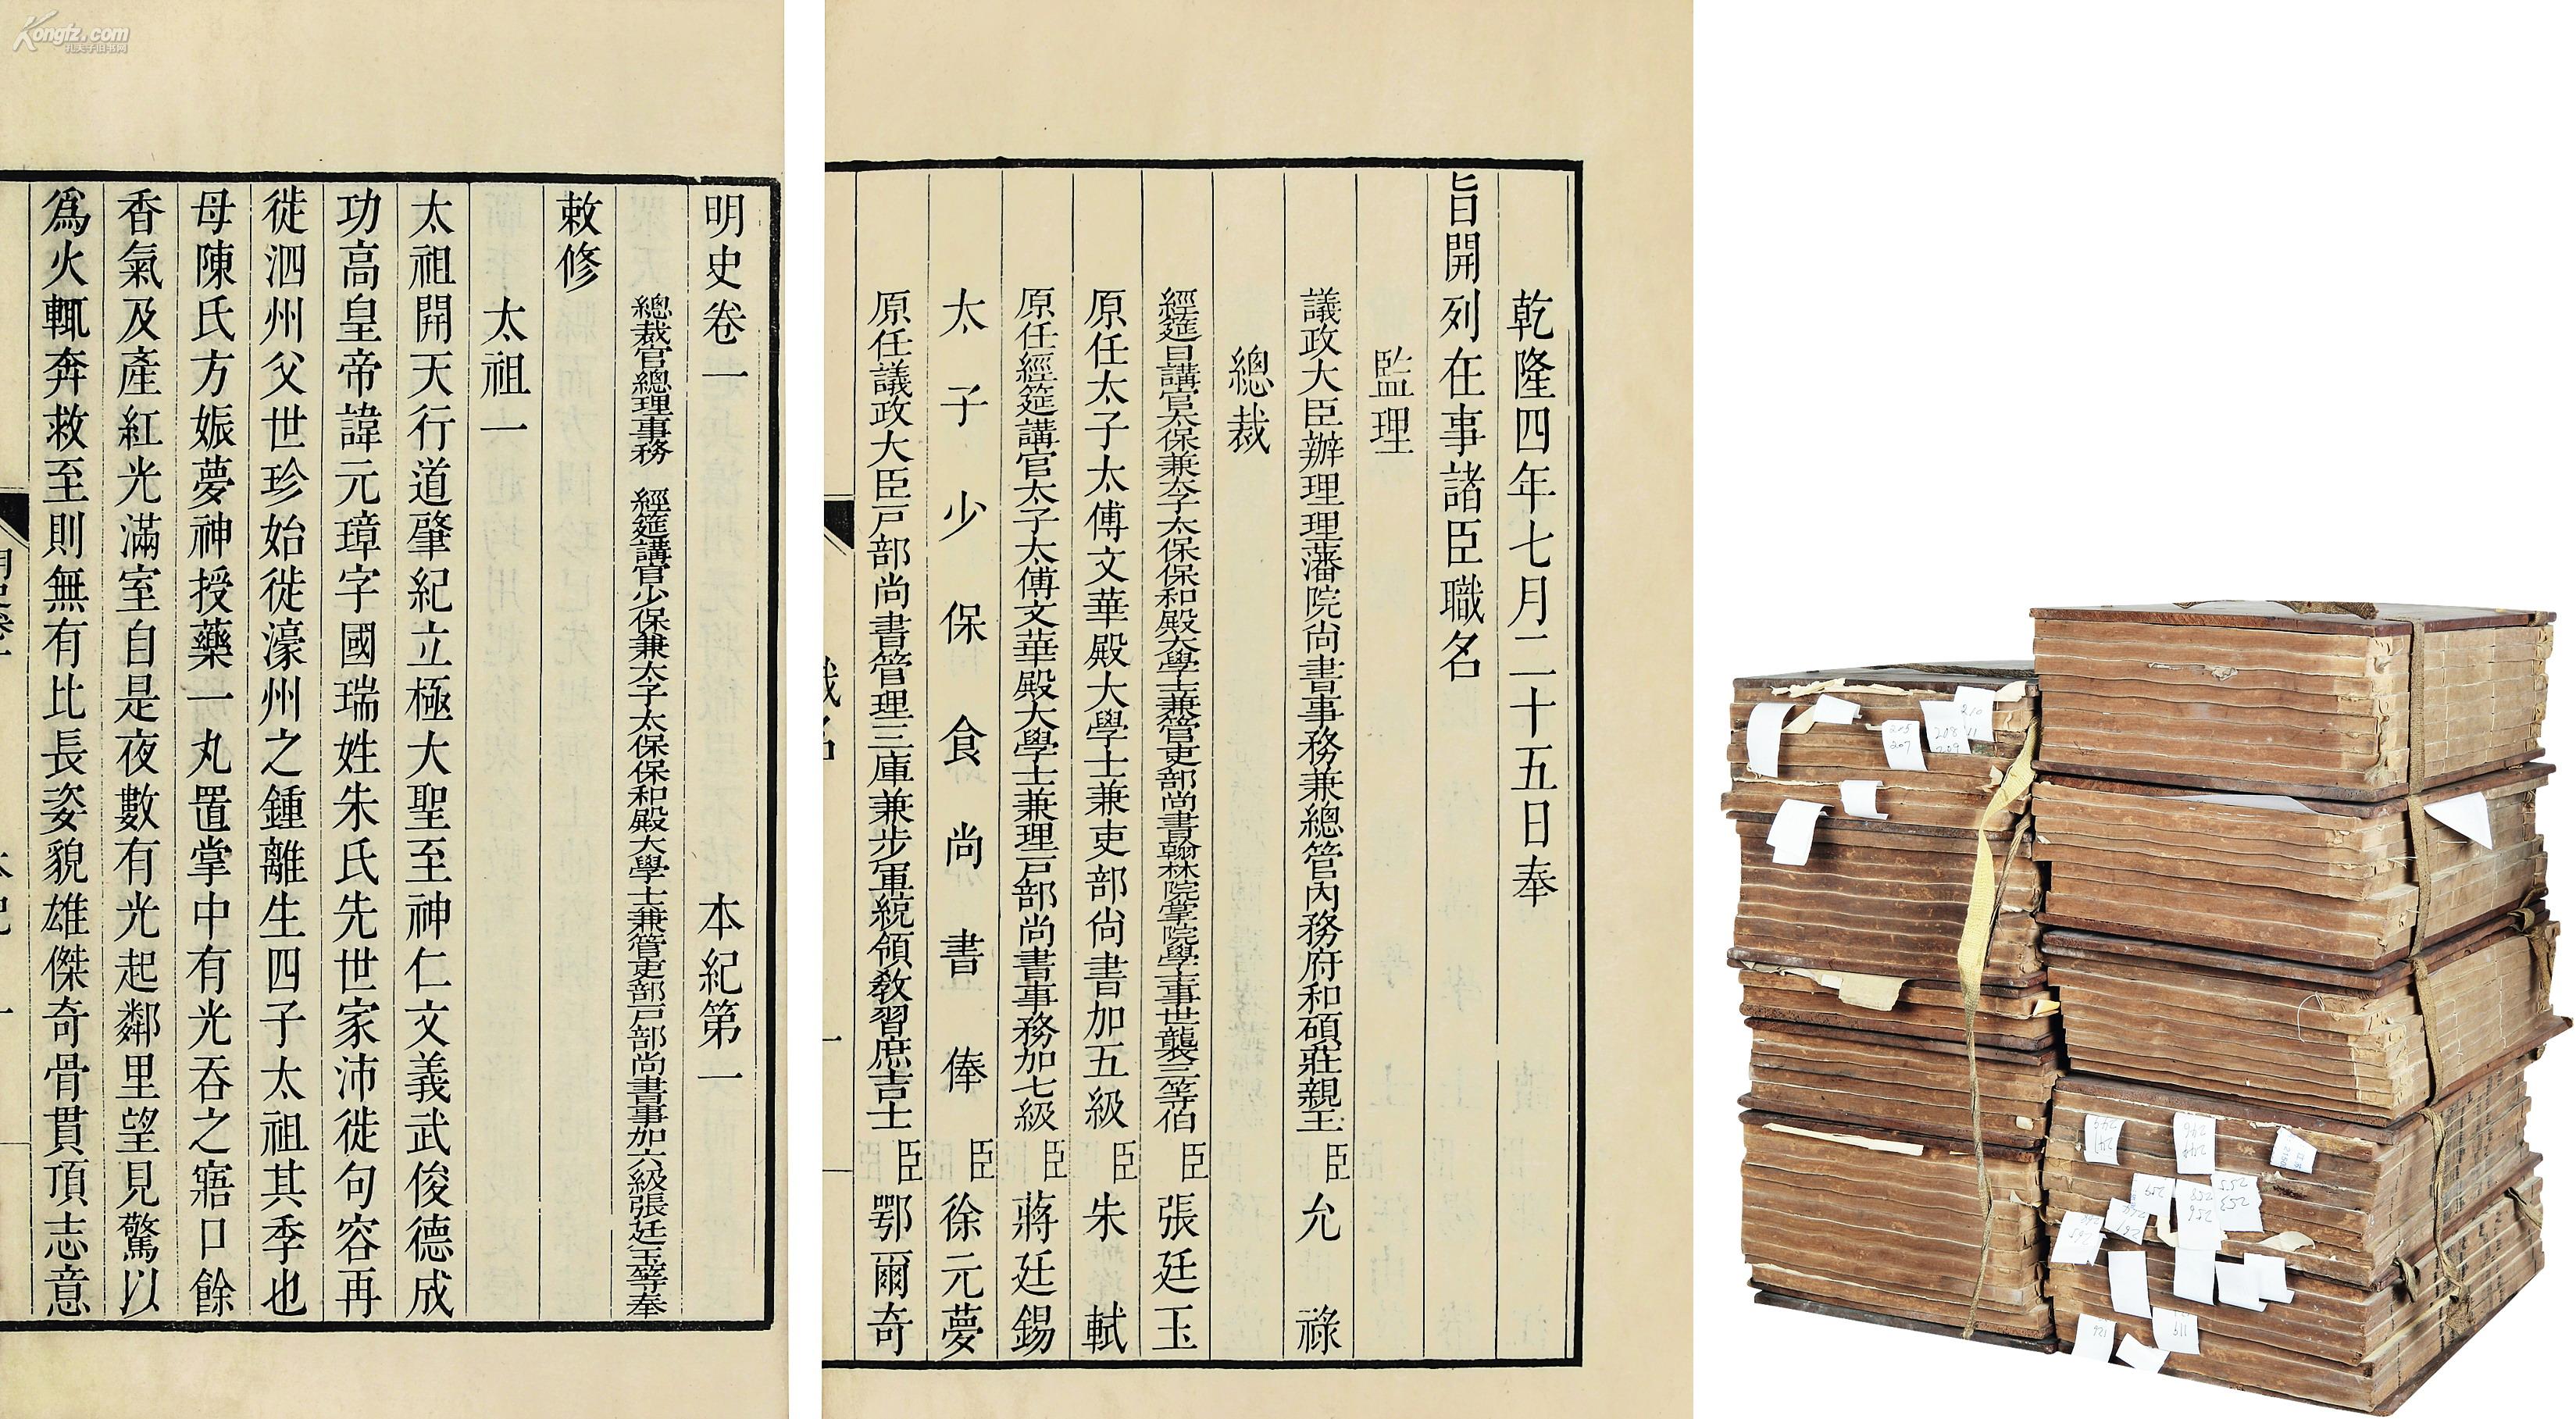 Kongfz.com
孔夫子旧书网
明史卷一 本紀第一
總裁官總理事務 經筵講官少保兼太子太保保和殿大學士兼管吏部戶部尚書事加六級張廷玉等奉
敕修
太祖一
太祖開天行道肇紀立極大聖至神仁文義武俊德成
功高皇帝諱元璋字國瑞姓朱氏先世家沛徙句容再
徙泗州父世珍始徙濠州之鍾離生四子太祖其季也
母陳氏方娠夢神授藥一丸置掌中有光吞之寤口餘
香氣及產紅光滿室自是夜數有光起鄰里望見驚以
爲火輒奔救至則無有比長姿貌雄傑奇骨貫頂志意
乾隆四年七月二十五日奉
旨開列在事諸臣職名
監理
議政大臣辦理理藩院尚書事務兼總管內務府和碩莊親王臣允祿
總裁
經筵日講官太保兼太子太保保和殿大學士兼管吏部尚書翰林院掌院學士事世襲三等伯臣張廷玉
原任太子太傅文華殿大學士兼吏部尚書加五級臣朱軾
原任經筵講官太子太傅文華殿大學士兼理戶部尚書事務加七級臣蔣廷錫
太子少保食尚書俸臣徐元夢
原任議政大臣戶部尚書管理三庫兼步軍統領教習庶吉士臣鄂爾奇
職名 一
210
207
208
209